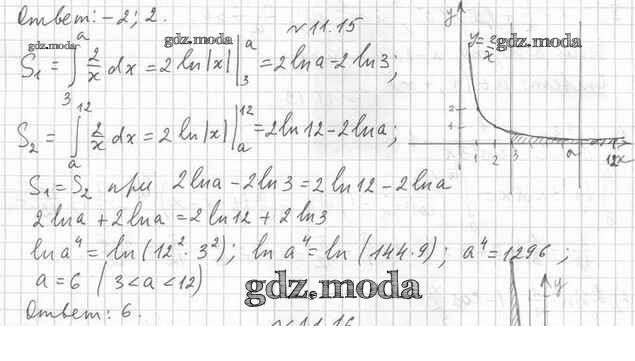 Ответ: -2; 2.
№11.15
gdz.moda
gdz.moda
S₁ = ∫₃ᵃ 2/x dx = 2 ln|x| |₃ᵃ = 2 ln a - 2 ln 3;
S₂ = ∫ₐ¹² 2/x dx = 2 ln|x| |ₐ¹² = 2 ln 12 - 2 ln a;
S₁ = S₂ при 2 ln a - 2 ln 3 = 2 ln 12 - 2 ln a
2 ln a + 2 ln a = 2 ln 12 + 2 ln 3
ln a⁴ = ln (12² · 3²); ln a⁴ = ln (144 · 9); a⁴ = 1296;
a = 6 (3 < a < 12)
Ответ: 6.
y
y = 2/x
gdz.moda
2
1
1 2 3 a 12 x
gdz.moda
y
№11.16